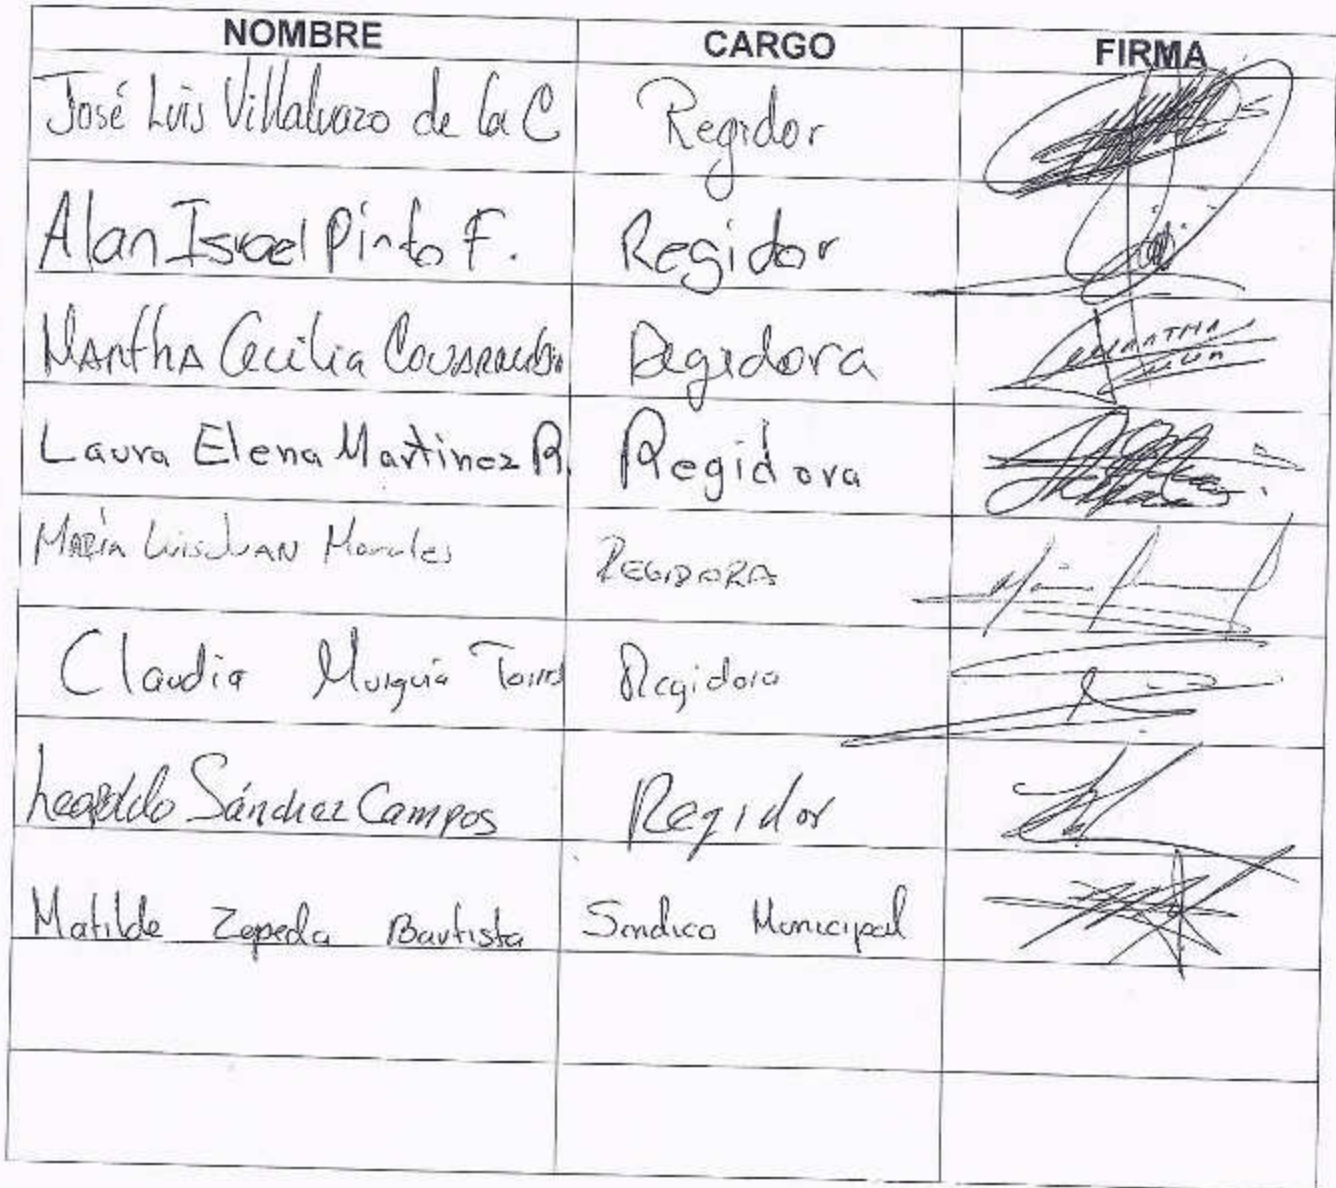 NOMBRE CARGO FIRMA
José Luis Villalvazo de la C Regidor
Alan Israel Pinto F. Regidor
Martha Cecilia Covarrubia Regidora
Laura Elena Martinez R. Regidora
María Luis Juan Morales REGIDORA
Claudia Murguía Torres Regidora
Leopoldo Sánchez Campos Regidor
Matilde Zepeda Bautista Sindico Municipal